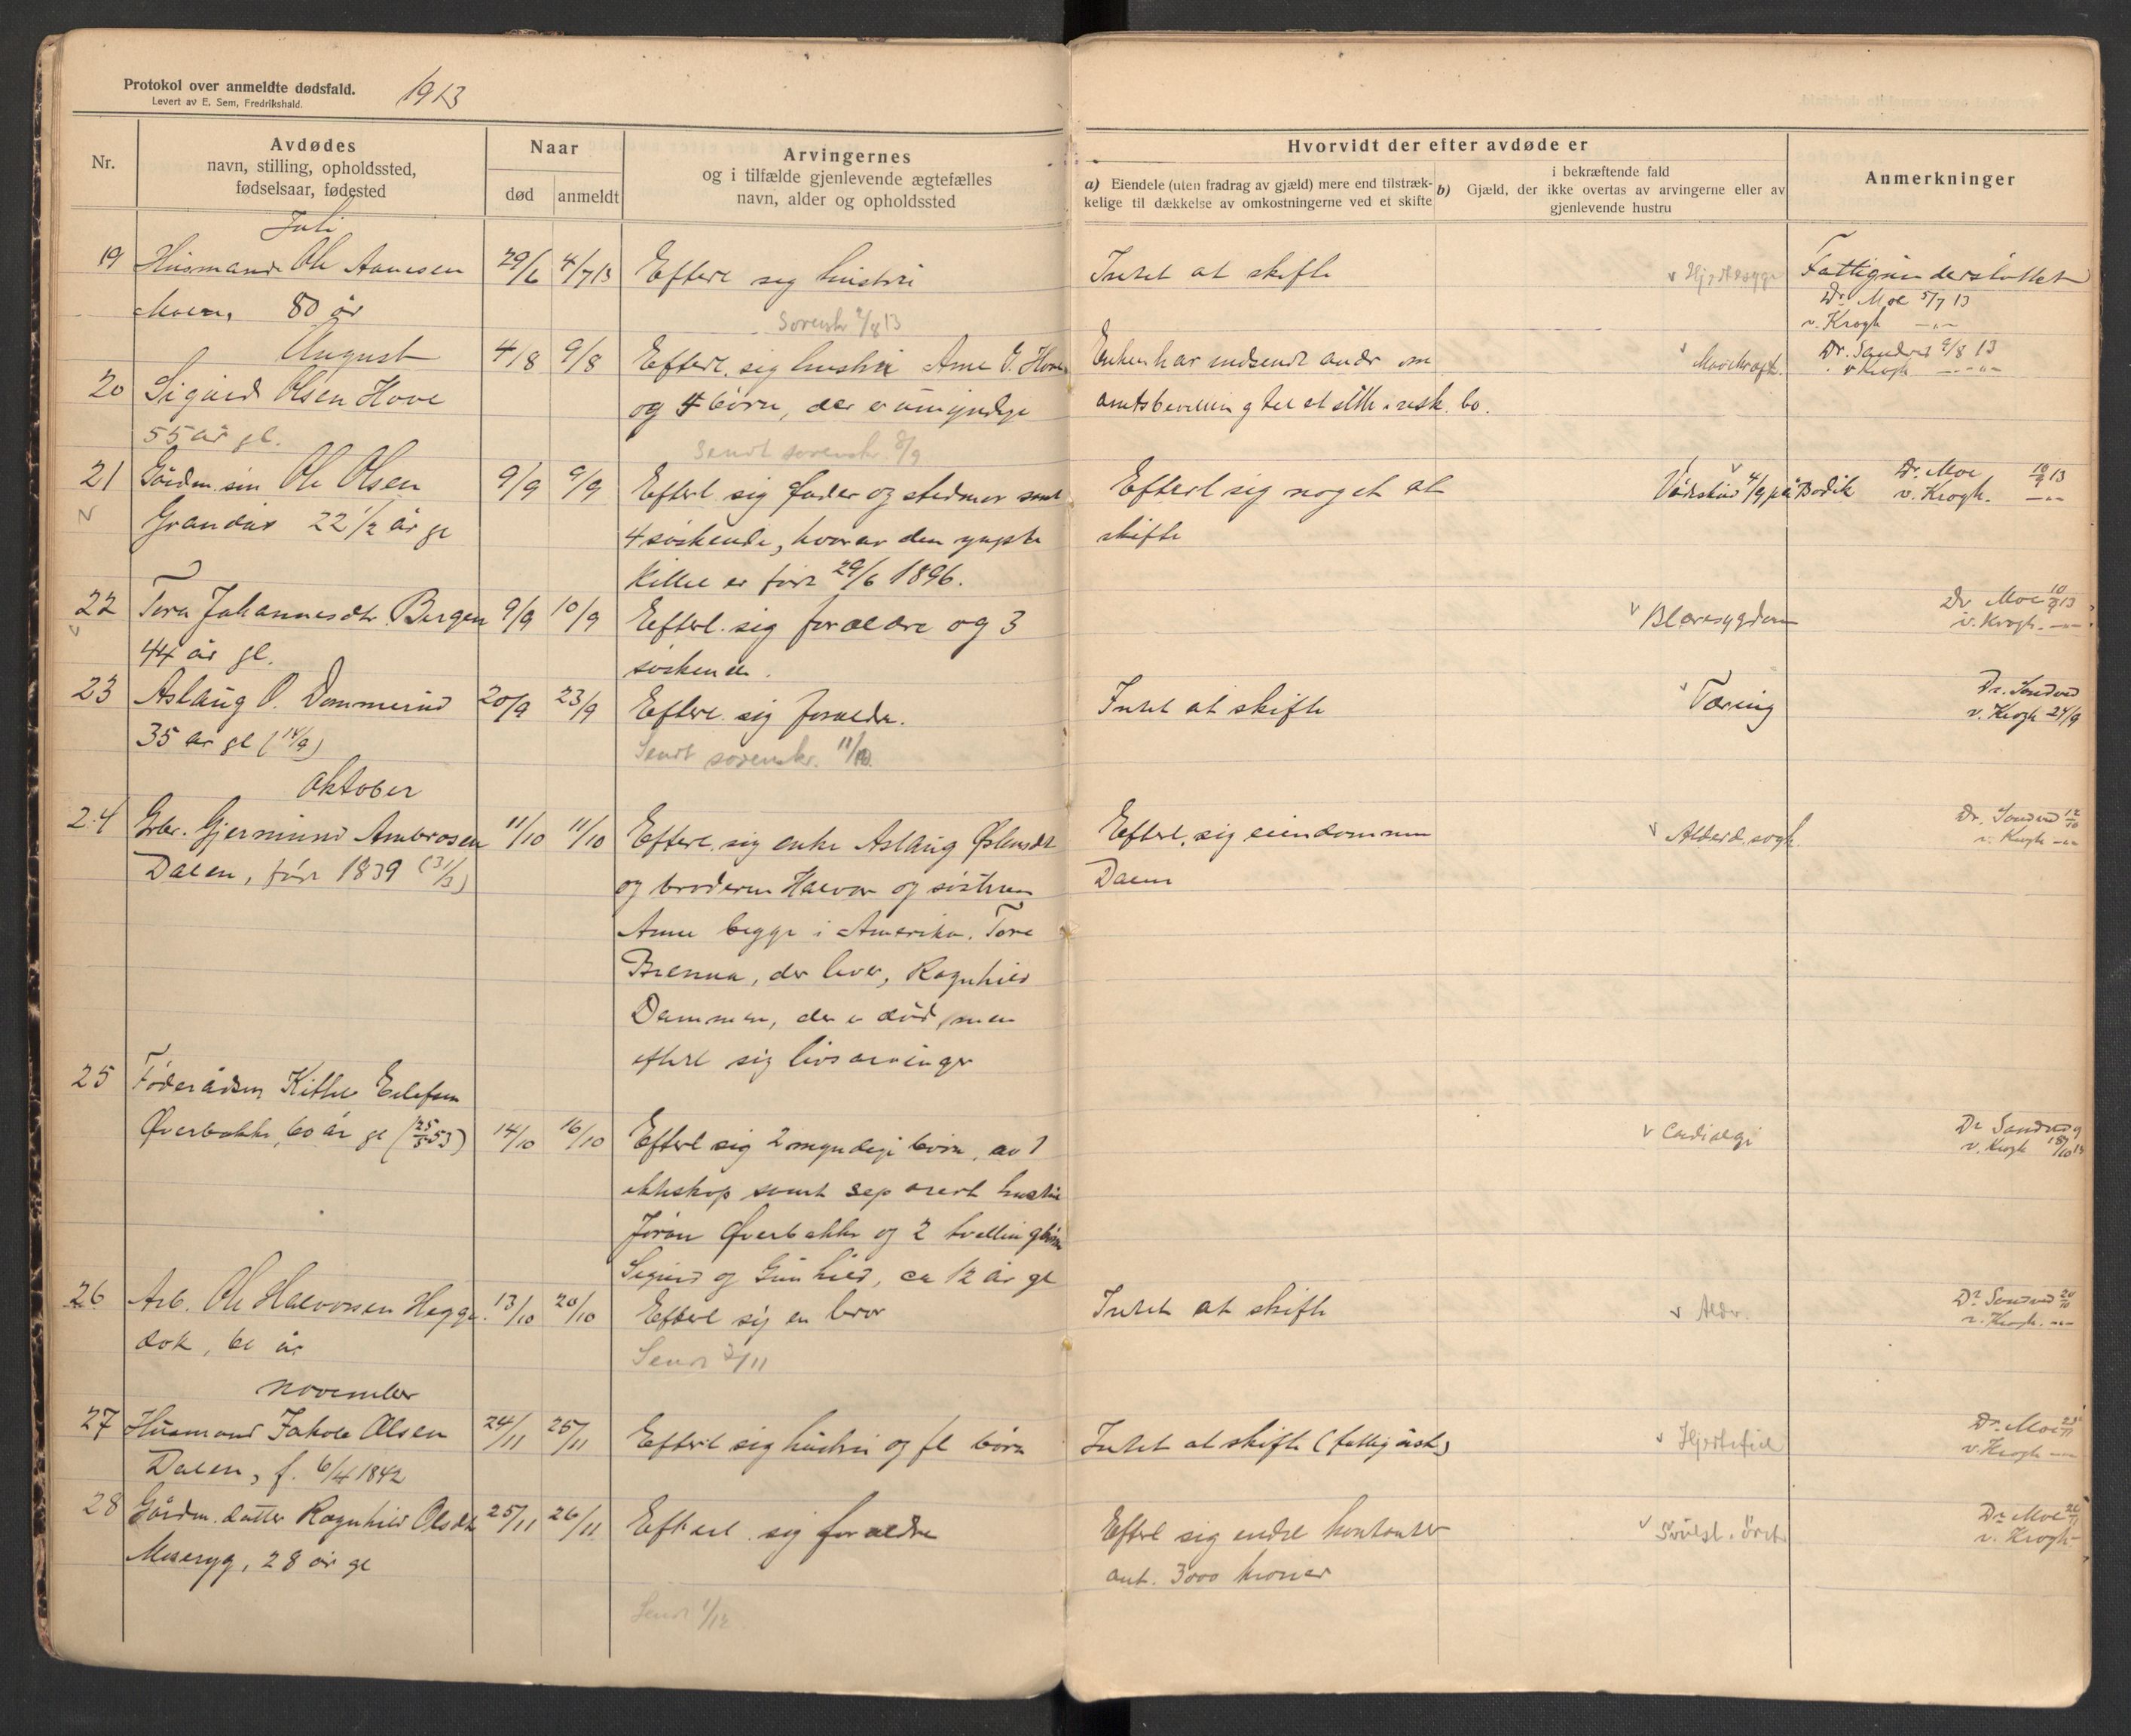 Protokol over anmeldte dødsfald.
Levert av E. Sem, Fredrikshald.
1913
Nr.
Avdødes
navn, stilling, opholdssted,
fødselsaar, fødested
Naar
død
anmeldt
Arvingernes
og i tilfælde gjenlevende ægtefælles
navn, alder og opholdssted
Hvorvidt der efter avdøde er
a) Eiendele (uten fradrag av gjæld) mere end tilstræk-
kelige til dækkelse av omkostningerne ved et skifte
i bekræftende fald
b) Gjæld, der ikke overtas av arvingerne eller av
gjenlevende hustru
Anmerkninger
Juli
19 Husmand Ole Aanesen 29/6 4/7 13 Efterl sig hustru Intet at skifte Hjertesyge Fattigunderstøttet
Moen, 80 år
Dr. Moe 5/7 13
v. Krogh -"-
Sorenskr 9/8 13
August
20 Sigurd Olsen Hove 4/8 9/8 Efterl. sig hustru Anne O. Hove Enken har indsendt andr om Mavekræft. Dr. Sandved 9/8 13
v Krogh -"-
og 4 børn, der er umyndige amtsbevilling til at sitte i usk. bo.
55 år gl.
Sendt sorenskr. 8/9
21 Gårdm. søn Ole Olsen 9/9 9/9 Efterl. sig fader og stedmor samt Efterl sig noget at Vådeskud 4/9 på Dr. Moe 10/9 13
v. Krogh. -"-
Grandås 22 1/2 år gl 4 søskende, hvorav den yngste skifte
Kittel er født 29/6 1896.
22 Tora Johannesdtr. Bergen 9/9 10/9 Efterl. sig forældre og 3 Blæresygdom Dr Moe 10/9 13
v. Krogh. -"-
44 år gl. søskende.
23 Aslaug O. Dommerud 20/9 23/9 Efterl. sig forældre. Intet at skifte Tæring Dr. Sandved
v. Krogh 24/9
35 år gl (14/9)
Sendt sorenskr. 11/10.
Oktober
24 Gbr. Gjermund Ambrosen 11/10 11/10 Efterl. sig enke Aslaug Østensdt Efterl. sig eiendommen Alderd. Dr. Sandved 12/10
v. Krogh -"-
Dalen, født 1839 (31/3) og broderen Halvor og søsteren Dalen
Anne begge i Amerika. Tore
Brenna, der lever, Ragnhild
Dammen, der er død, men
efterl sig livsarvinger
25 Føderådsm Kittel Eilefsen
Øverbakke, 60 år gl (25/5 53) 14/10 16/10 Efterl sig 2 myndige børn, av 1 Cardialgi Dr Sandved
v. Krogh 18/10 13
ekteskap samt separert hustru
Jøran Øverbakke og 2 tvillingbørn
Sigurd og Gunhild, ca 12 år gl
26 Arb. Ole Halvorsen Hegge 13/10 20/10 Efterl sig en bror Intet at skifte Alder. Dr Sandved 20/10
v. Krogh. -"-
år
Sendt 3/11
november
27 Husmand Jakob Olsen 24/11 25/11 Efterl sig hustru og fl børn Intet at skifte (fattigunst) Hjertefeil Dr. Moe 25/11
v. Krogh -"-
Dalen, f. 6/4 1842
28 Gårdm. datter Ragnhild Olsdtr 25/11 26/11 Efterl. sig forældre Efterl sig endel kontanter Dr. Moe 26/11
v. Krogh -
28 år gl ant. 3000 kroner
Sendt 1/12